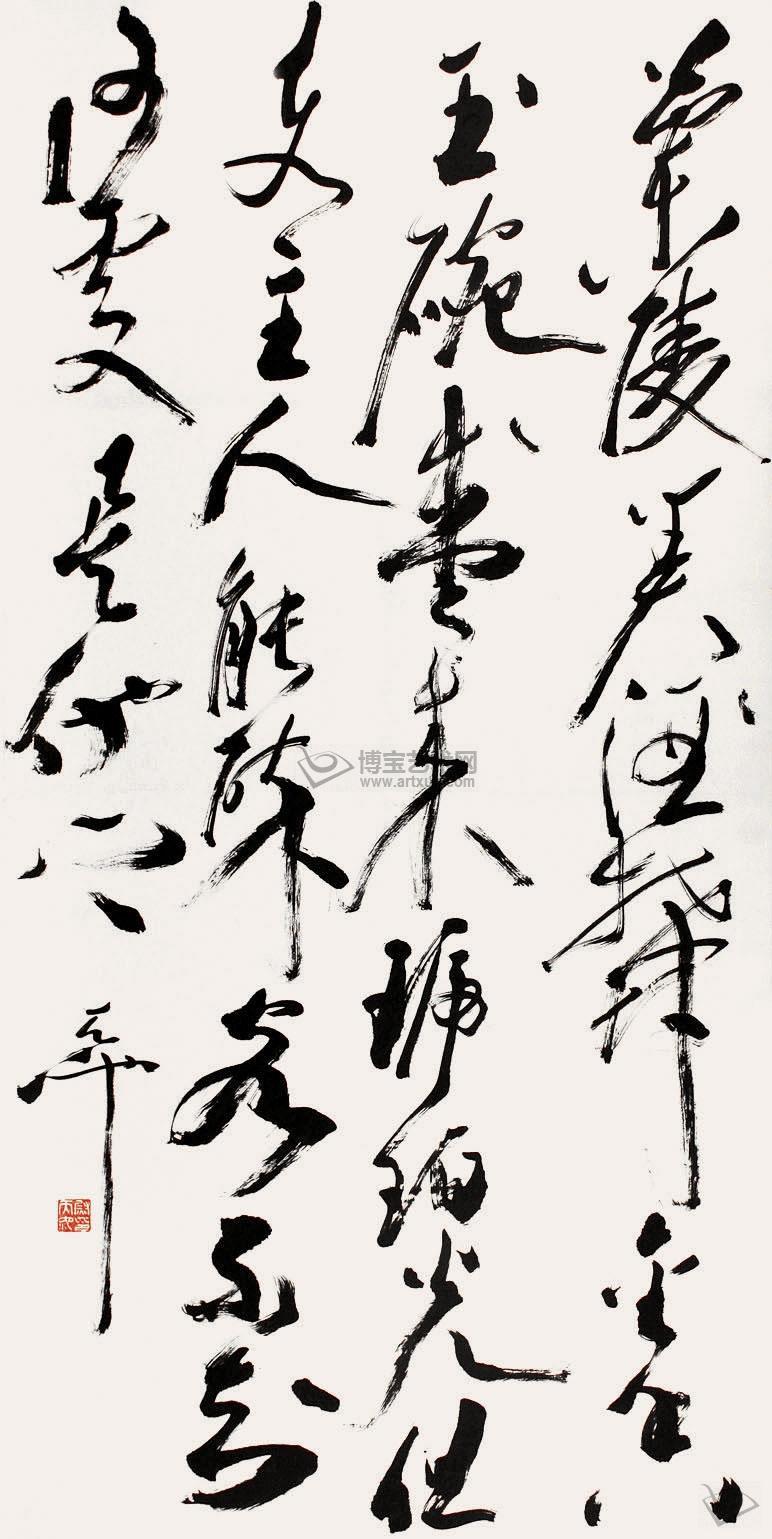 蘭陵美酒鬱金香
玉碗盛来琥珀光但
使主人能醉客不知
何處是他鄉
博宝艺术网
www.artxun.com